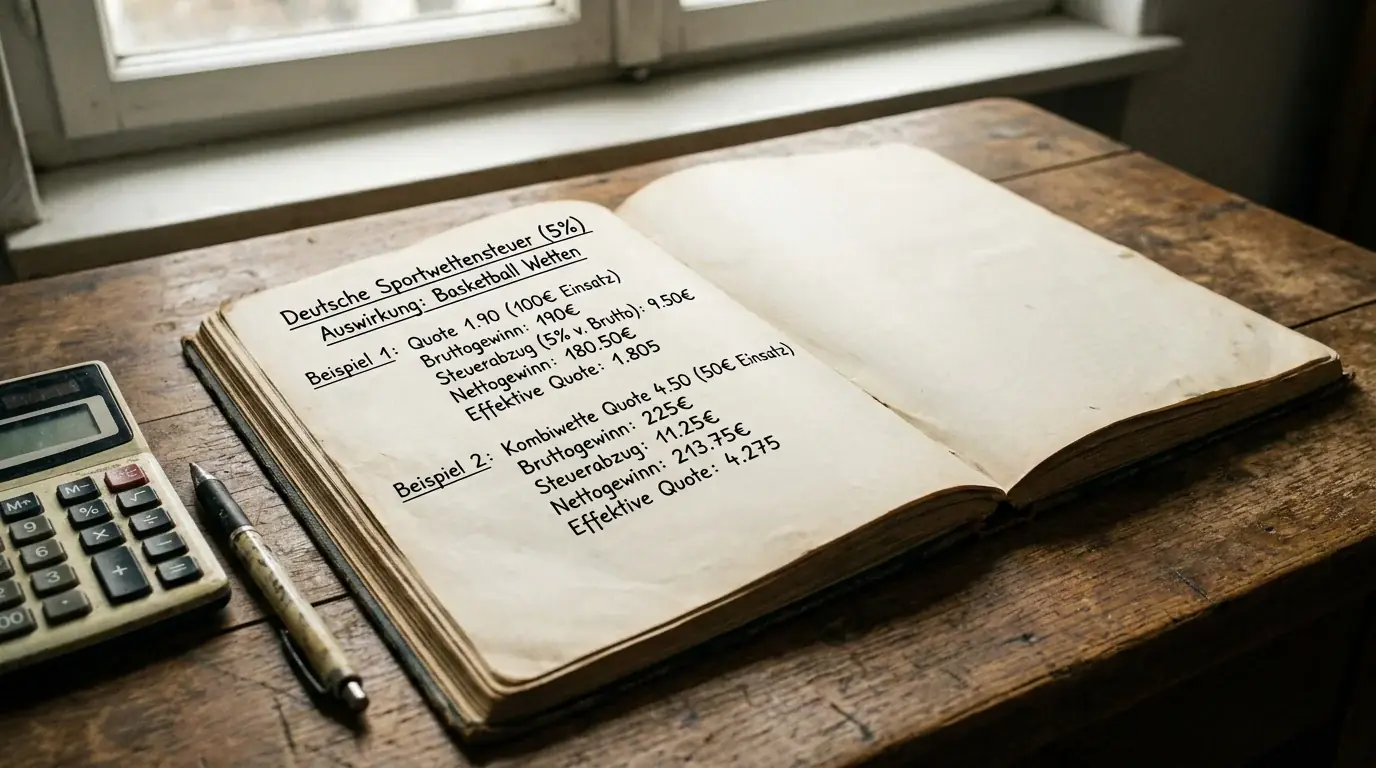 Deutsche Sportwettensteuer (5%)
Auswirkung: Basketball Wetten
Beispiel 1: Quote 1.90 (100€ Einsatz)
Bruttogewinn: 190€
Steuerabzug (5% v. Brutto): 9.50€
Nettogewinn: 180.50€
Effektive Quote: 1.805
Beispiel 2: Kombiwette Quote 4.50 (50€ Einsatz)
Bruttogewinn: 225€
Steuerabzug: 11.25€
Nettogewinn: 213.75€
Effektive Quote: 4.275
M+
M-
%
√
9
×
÷
6
3
+
=
.
00